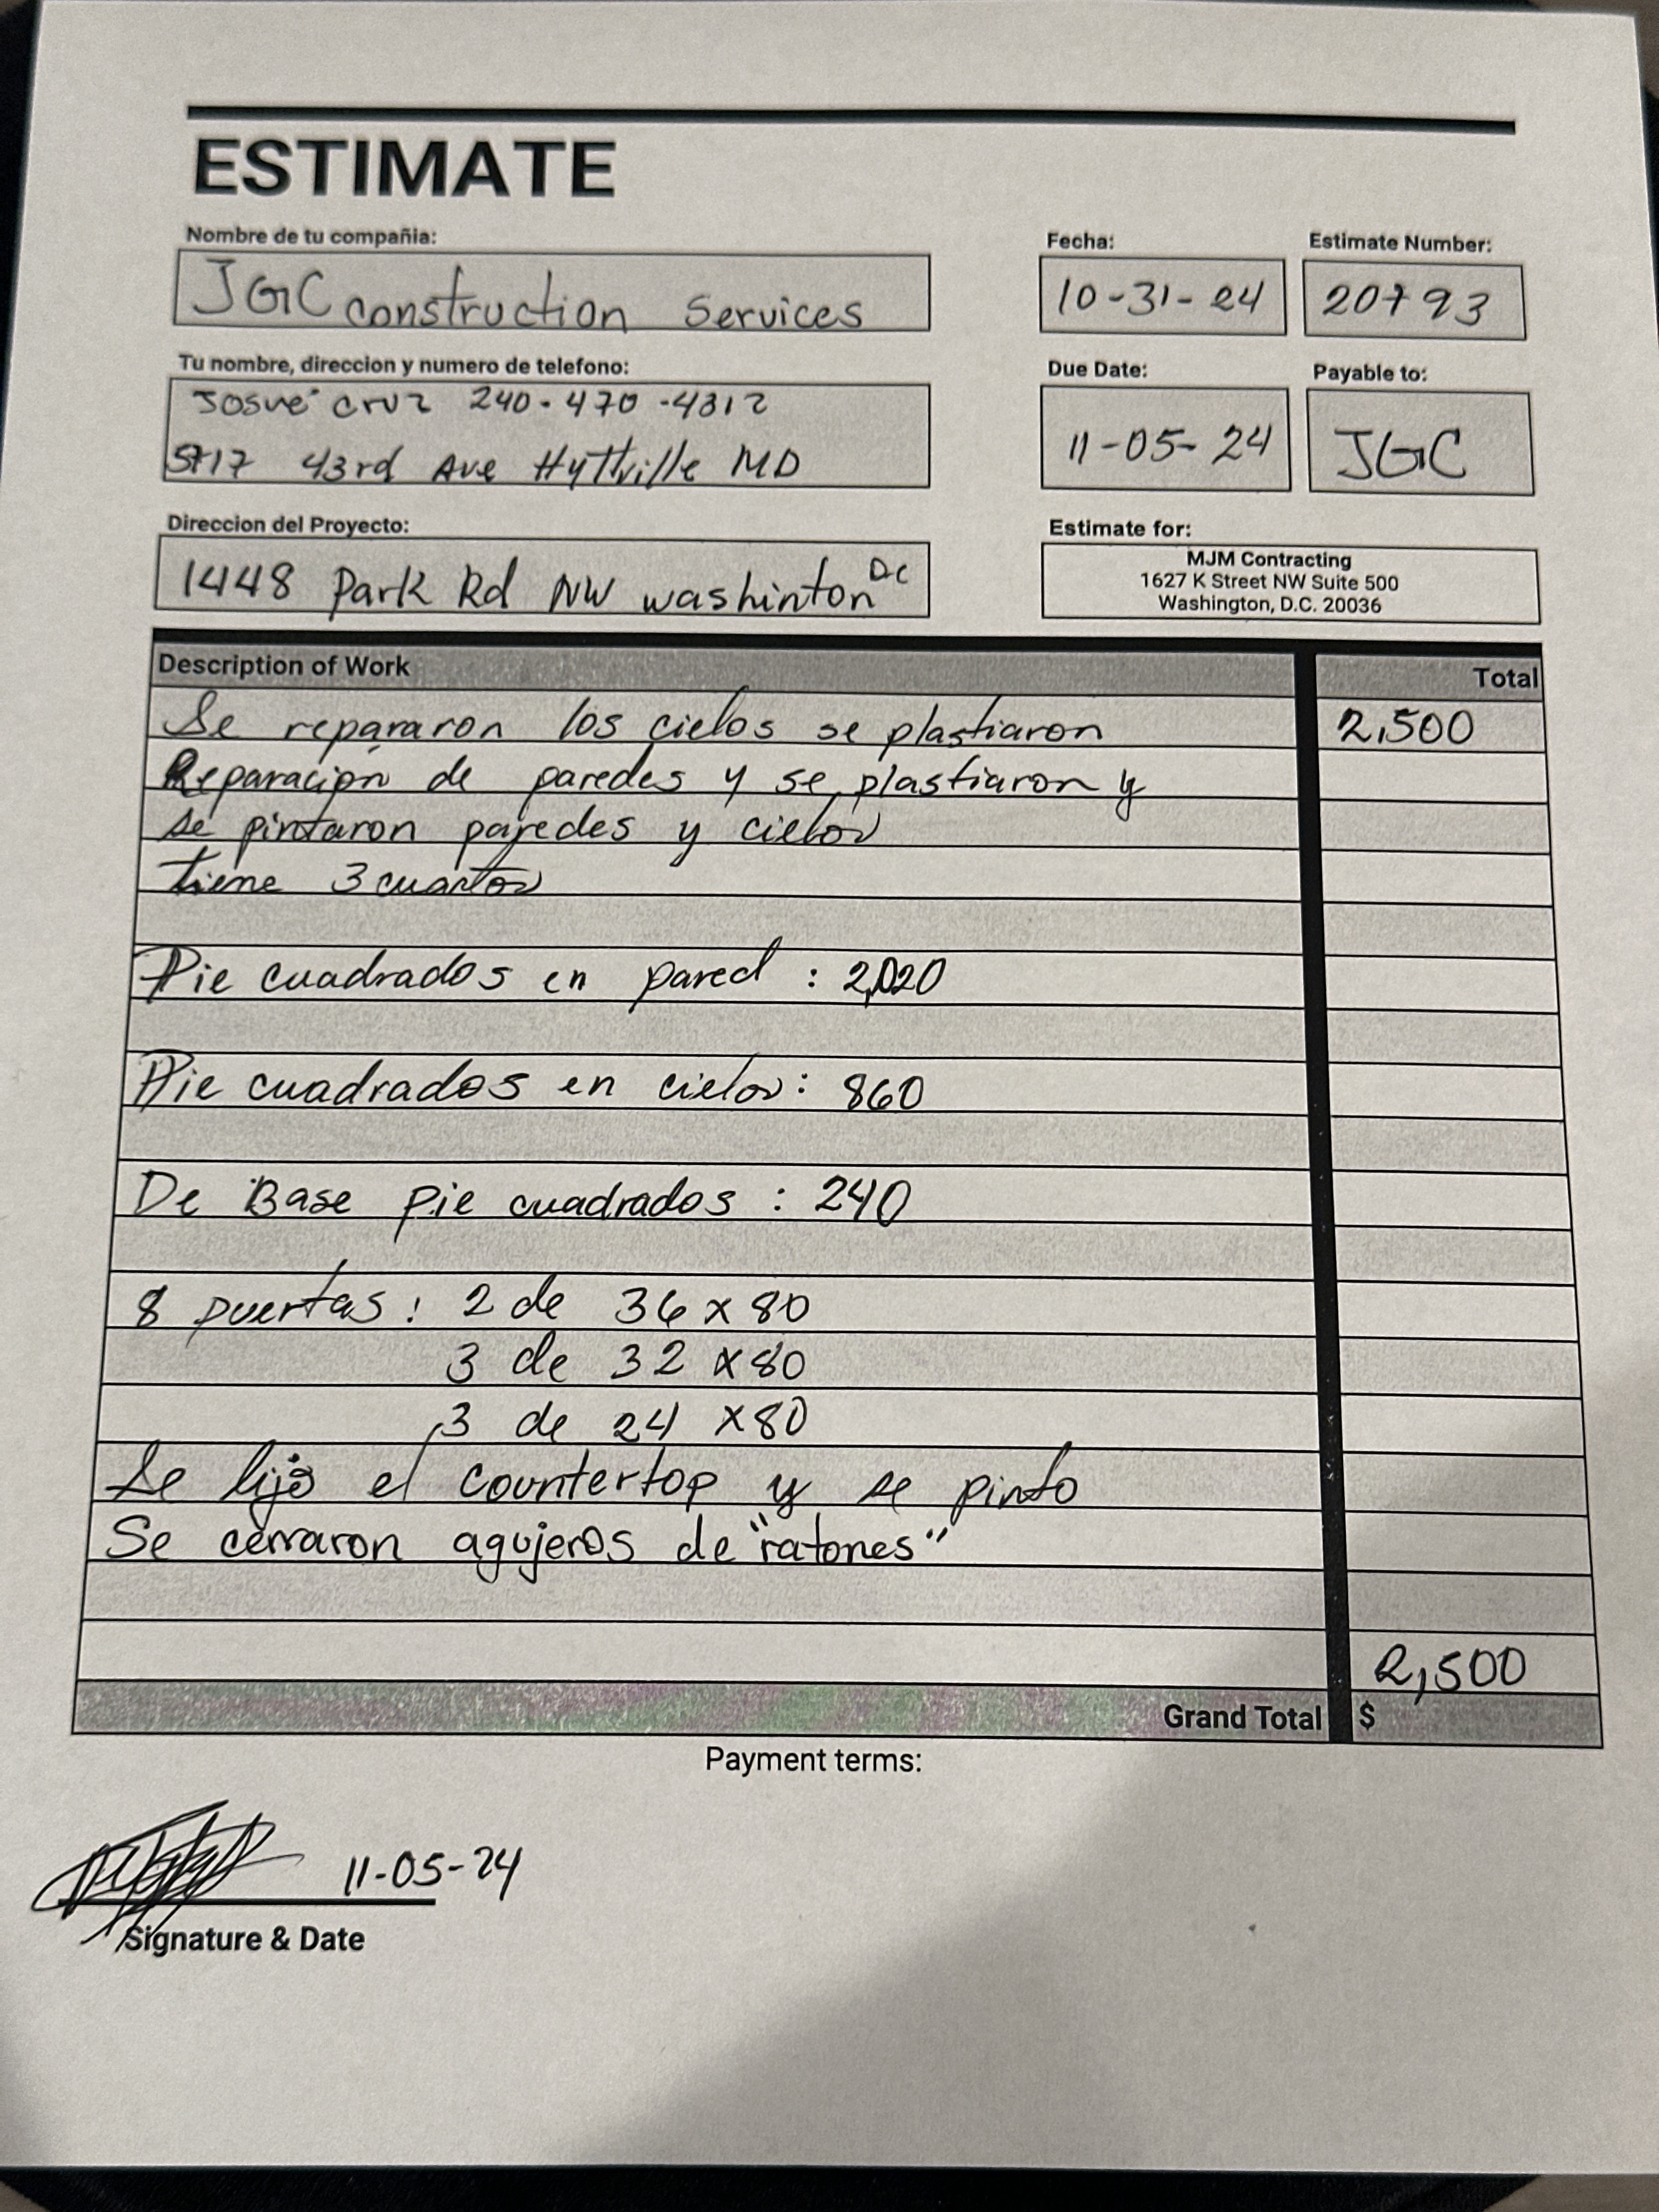 ESTIMATE
Nombre de tu compañia:
Fecha:
Estimate Number:
JGC construction Services
10-31-24
20793
Tu nombre, direccion y numero de telefono:
Due Date:
Payable to:
Josué cruz 240-470-4312
5717 43rd Ave Hyttville MD
11-05-24
JGC
Direccion del Proyecto:
Estimate for:
1448 Park Rd NW washinton DC
MJM Contracting
1627 K Street NW Suite 500
Washington, D.C. 20036
Description of Work
Total
Se repararon los cielos se plastiaron
2,500
Reparación de paredes y se plastiaron y
se pintaron paredes y cielos
tiene 3 cuartos
Pie cuadrados en pared : 2,020
Pie cuadrados en cielos: 860
De Base pie cuadrados : 240
8 puertas: 2 de 36 x 80
3 de 32 x 80
3 de 24 x 80
Se lijo el countertop y se pinto
Se cerraron agujeros de "ratones"
2,500
Grand Total $
Payment terms:
11-05-24
Signature & Date